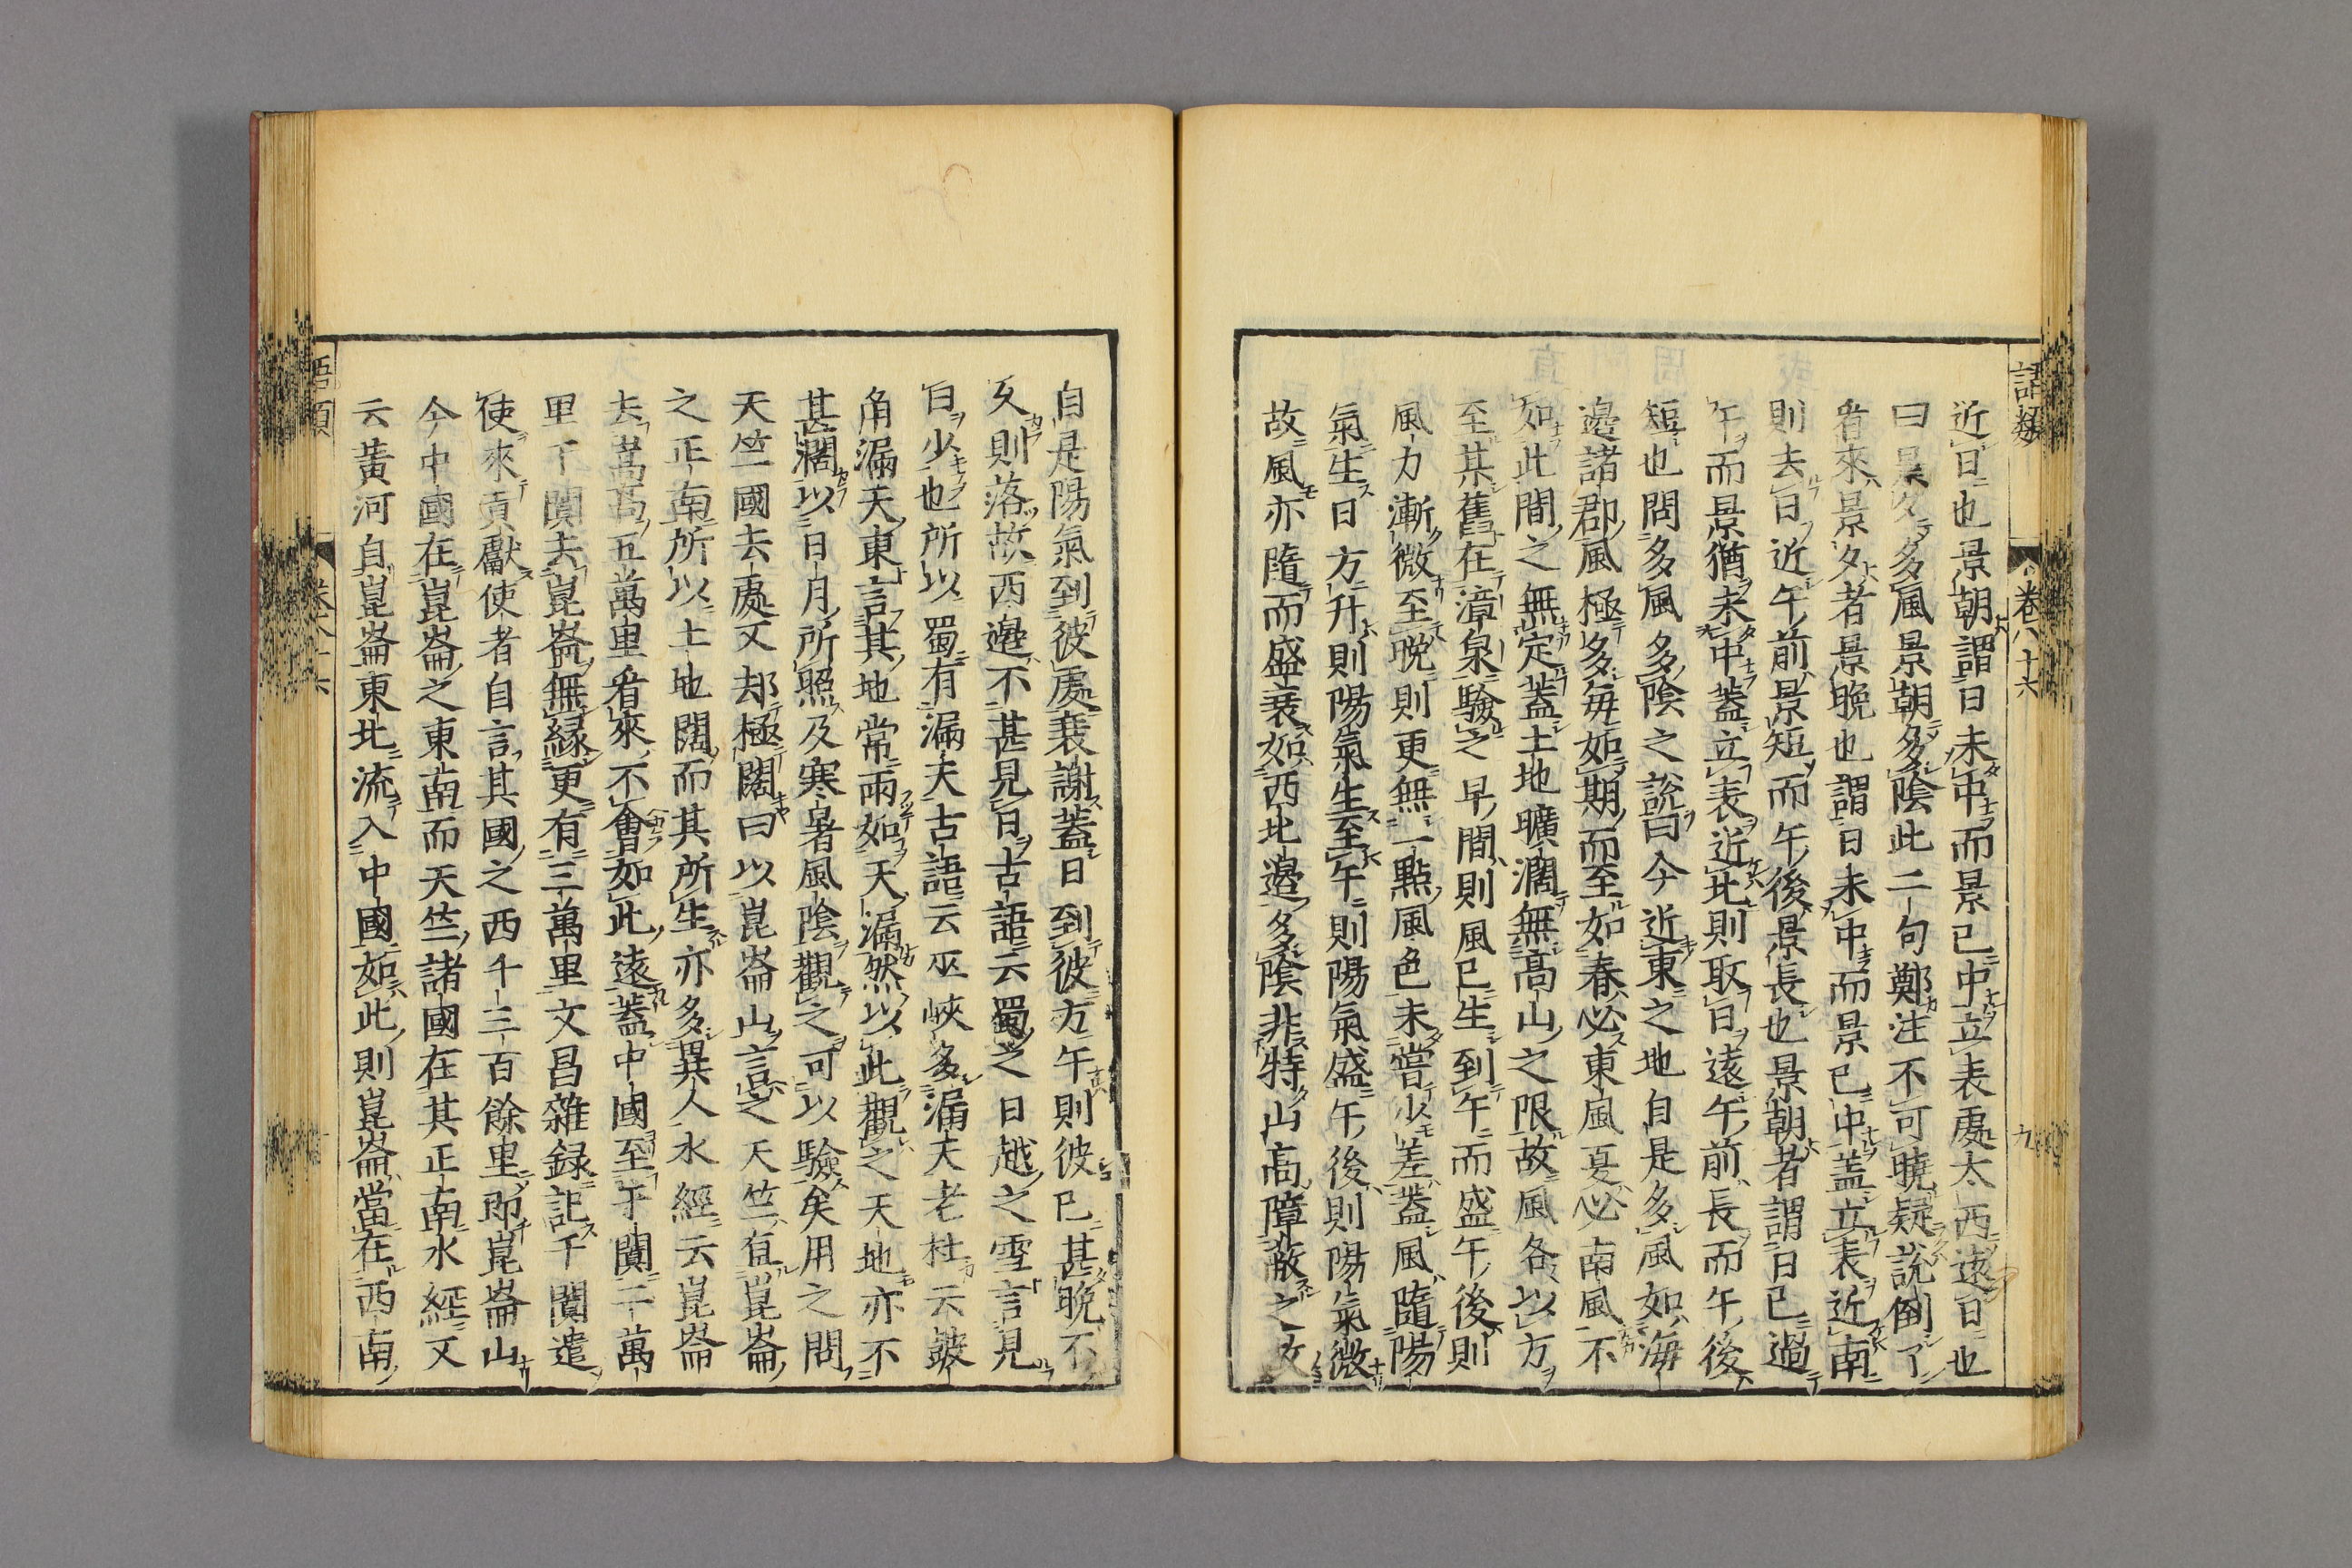 語類
卷八十六
九
近日也景朝謂日未中而景已中立表處太西遠日也
曰景夕多風景朝多陰此二句鄭注不可曉疑說倒了
看來景夕者景晚也謂日未中而景已中蓋立表近南
則去日近午前景短而午後景長也景朝者謂日已過
午而景猶未中蓋立表近北則取日遠午前長而午後
短也問多風多陰之說曰今近東之地自是多風如海
邊諸郡風極多每如期而至如春必東風夏必南風不
如此間之無定蓋土地曠濶無高山之限故風各以方
至某舊在漳泉驗之早間則風已生到午而盛午後則
風力漸微至晚則更無一點風色未嘗少差蓋風隨陽
氣生日方升則陽氣生至午則陽氣盛午後則陽氣微
故風亦隨而盛衰如西北邊多陰非特山高障蔽之故
自是陽氣到彼處衰謝蓋日到彼方午則彼已甚晚不
久則落故西邊不甚見日古語云蜀之日越之雪言見
日少也所以蜀有漏天古語云巫峽多漏天老杜云鼓
角漏天東言其地常雨如天漏然以此觀之天地亦不
甚濶以日月所照及寒暑風陰觀之可以驗矣用之問
天竺國去處又却極闊曰以崑崙山言之天竺直崑崙
之正南所以土地闊而其所生亦多異人水經云崑崙
去嵩高五萬里看來不會如此遠蓋中國至于闐二萬
里于闐去崑崙無緣更有三萬里文昌雜録記于闐遣
使來貢獻使者自言其國之西千三百餘里即崑崙山
今中國在崑崙之東南而天竺諸國在其正南水經又
云黃河自崑崙東北流入中國如此則崑崙當在西南
語類
卷八十六